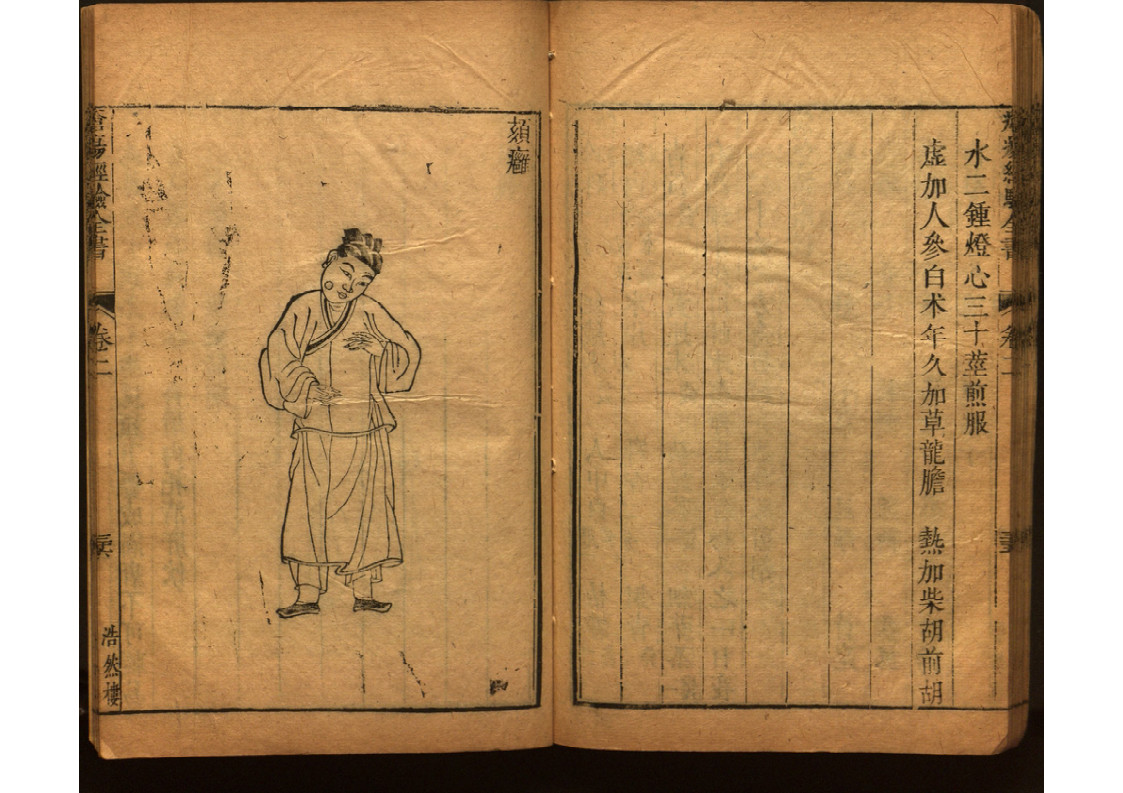 水二鍾燈心三十莖煎服
虛加人參白术年久加草龍膽　熱加柴胡前胡
頦癰
瘡瘍經驗全書
卷二
浩然樓